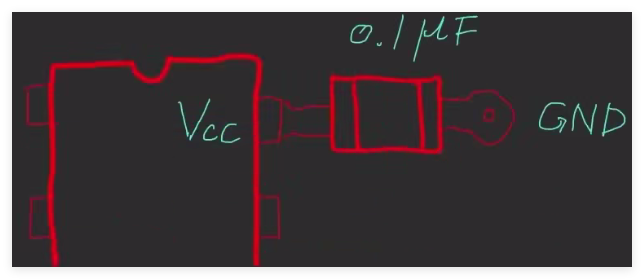 0.1 μF
Vcc
GND